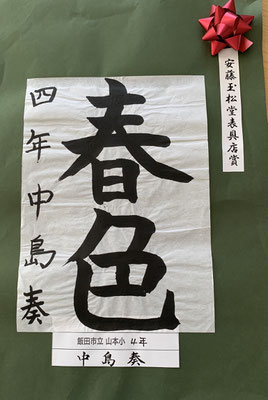 安藤玉松堂表具店賞
春色
四年中島奏
飯田市立 山本小 4年
中島奏